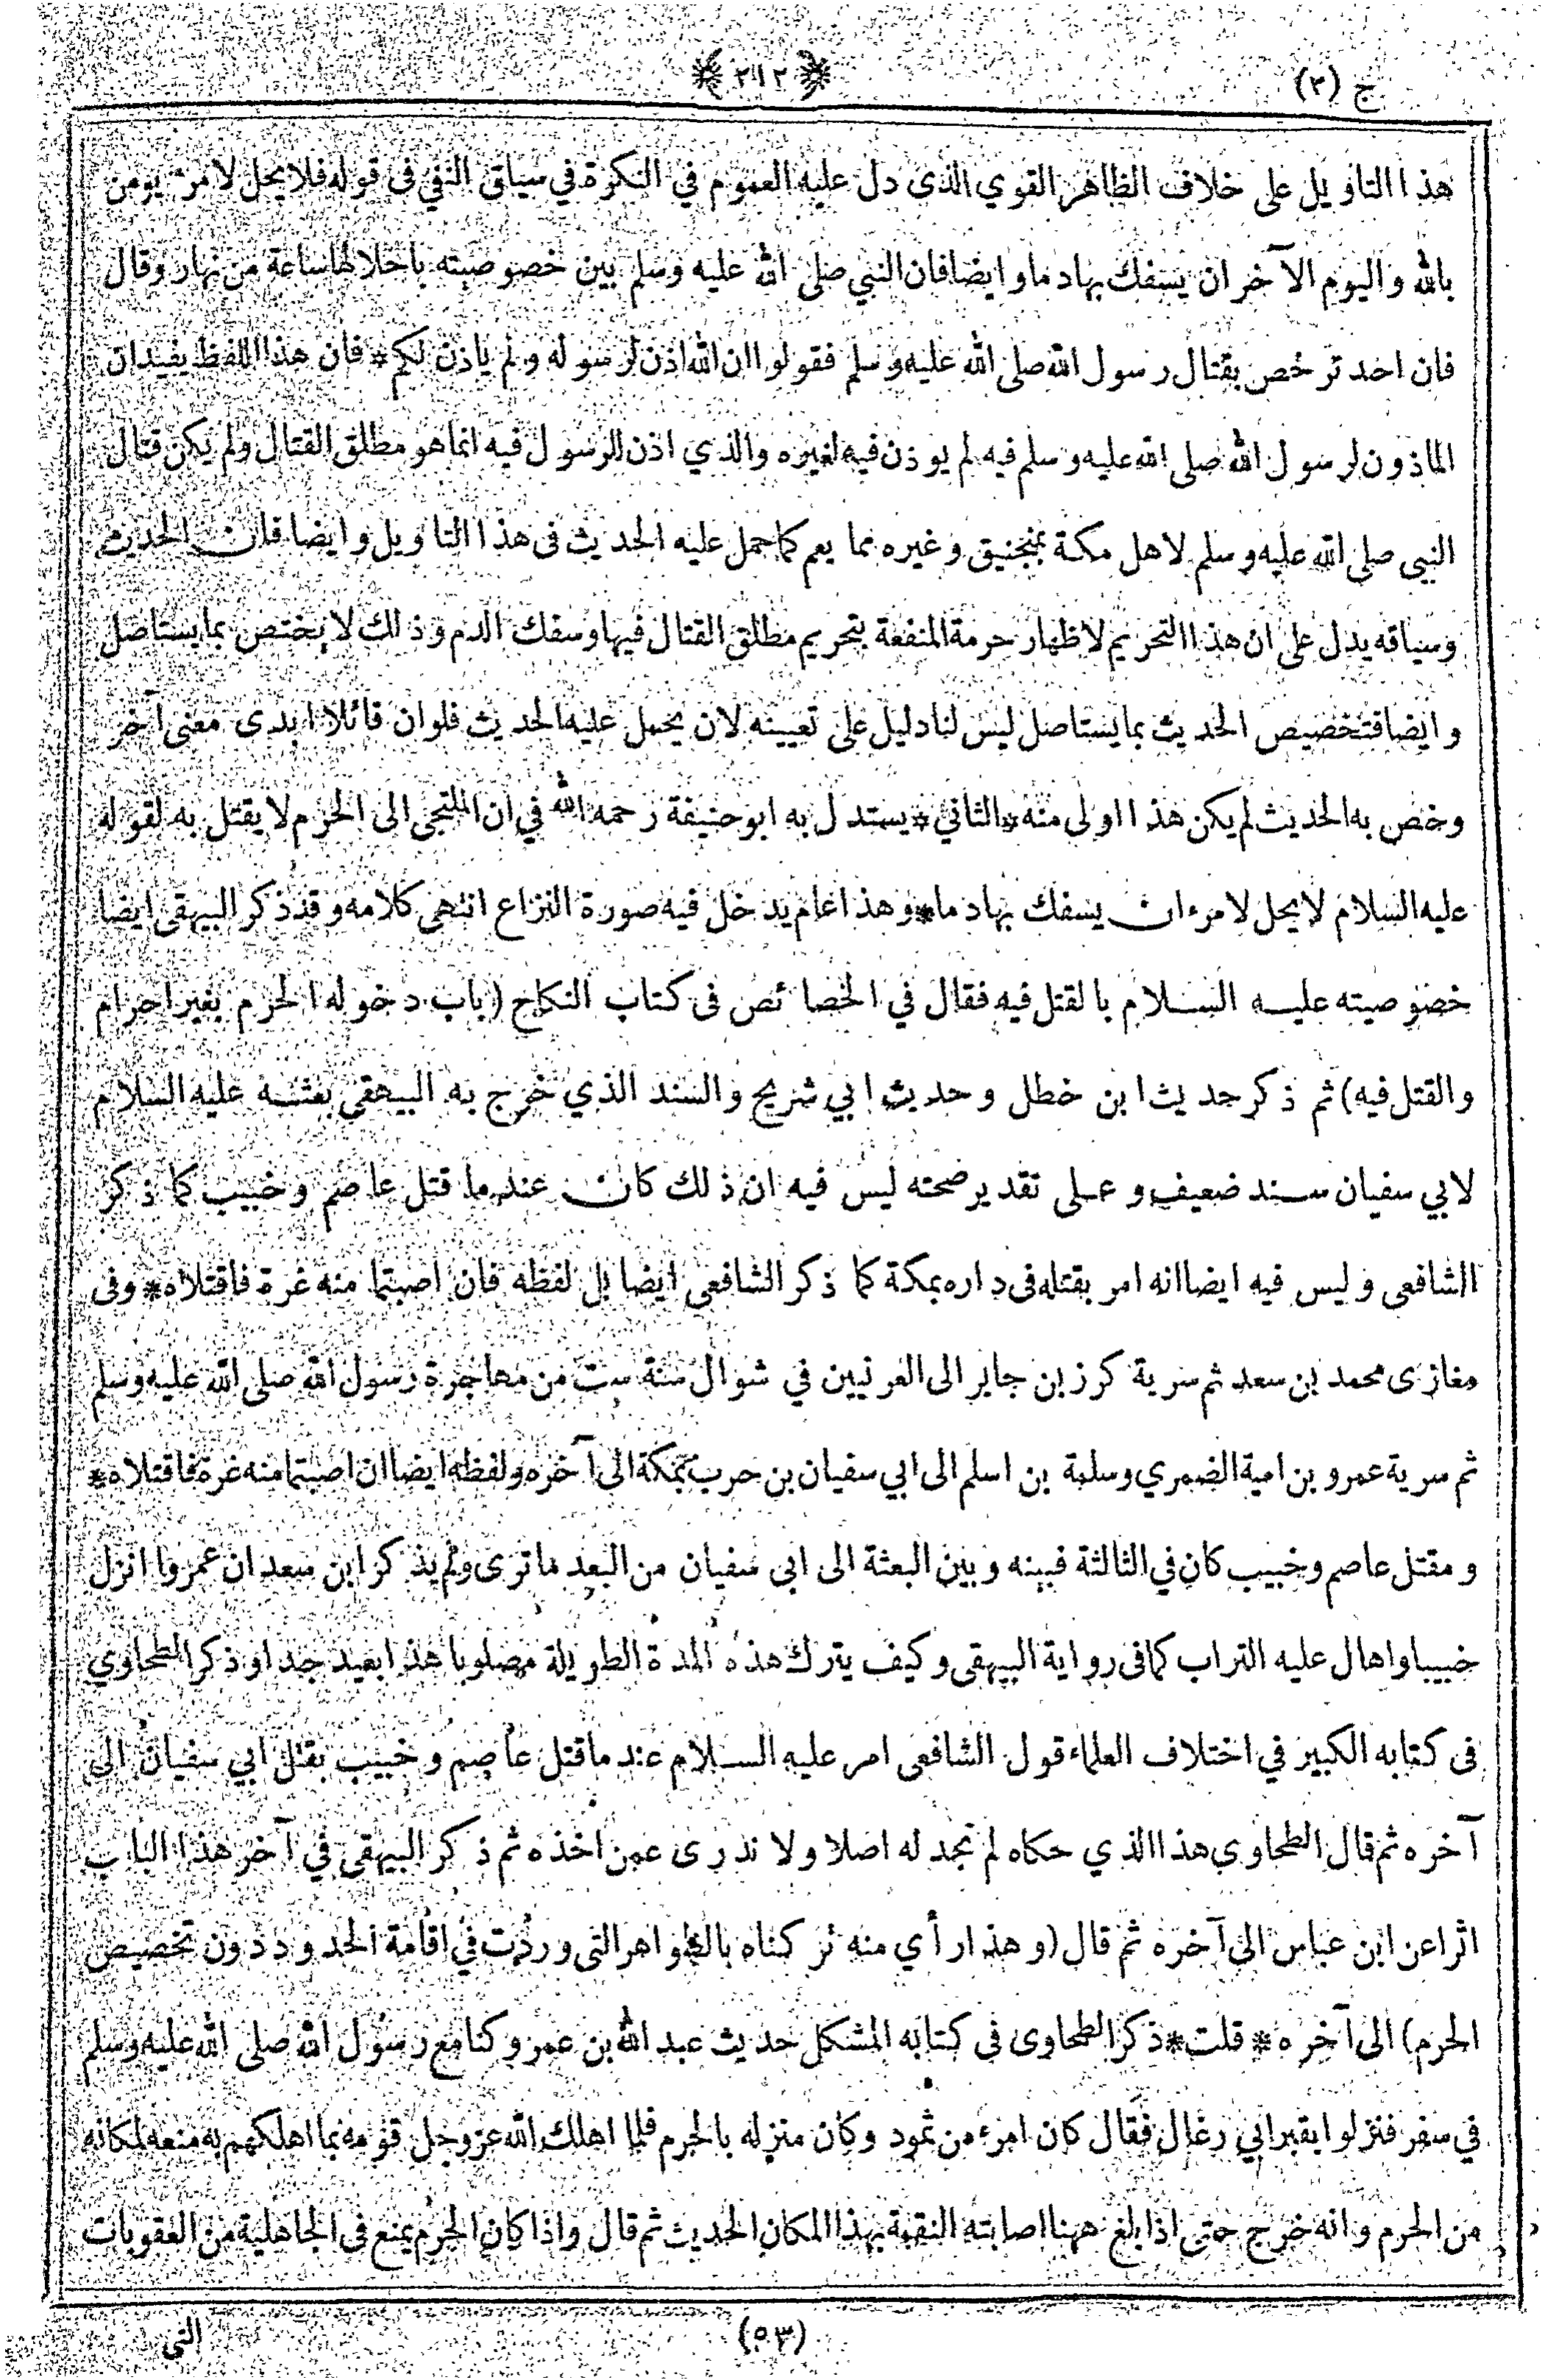 ج (٣)
﴿ ٢١٢ ﴾
هذا التاويل على خلاف الظاهر القوي الذى دل عليه العموم في النكرة في سياق النفي فى قوله فلا يحل لامرء يومن
بالله واليوم الآخر ان يسفك بهاد ما وايضا فان النبي صلى الله عليه وسلم بين خصوصيته باحلالها ساعة من نهار وقال
فان احد ترخص بقتال رسول الله صلى الله عليه وسلم فقولوا ان الله اذن لرسوله ولم ياذن لكم * فان هذا اللفظ يفيد ان
الماذون لرسول الله صلى الله عليه وسلم فيه لم يوذن فيه لغيره والذي اذن للرسول فيه انما هو مطلق القتال ولم يكن قتال
النبي صلى الله عليه وسلم لاهل مكة بمنجنيق وغيره مما يعم كما حمل عليه الحديث فى هذا التاويل وايضا فان الحديث
وسياقه يدل على ان هذا التحريم لاظهار حرمة المنفعة بتحريم مطلق القتال فيها وسفك الدم وذلك لا يختص بما يستاصل
وايضا فتخصيص الحديث بما يستاصل ليس لنا دليل على تعيينه لان يحمل عليه الحديث فلوان قائلا ابدى معنى آخر
وخص به الحديث لم يكن هذا اولى منه * الثاني * يستدل به ابو حنيفة رحمه الله في ان الملتجى الى الحرم لا يقتل به لقوله
عليه السلام لا يحل لامرء ان يسفك بهاد ما * وهذا عام يدخل فيه صورة النزاع انتهى كلامه وقد ذكر البيهقى ايضا
خصوصيته عليه السلام بالقتل فيه فقال في الخصائص فى كتاب النكاح (باب دخوله الحرم بغير احرام
والقتل فيه) ثم ذكر حديث ابن خطل وحديث ابي شريح والسند الذي خرج به البيهقى بعثه عليه السلام
لابي سفيان سند ضعيف وعلى تقدير صحته ليس فيه ان ذلك كان عند ما قتل عاصم وخبيب كما ذكر
الشافعى وليس فيه ايضا انه امر بقتله فى داره بمكة كما ذكر الشافعى ايضا بل لفظه فان اصبتما منه غرة فاقتلاه * وفى
مغازى محمد بن سعد ثم سرية كرز بن جابر الى العرنيين في شوال سنة ست من مهاجرة رسول الله صلى الله عليه وسلم
ثم سرية عمرو بن امية الضمري وسلمة بن اسلم الى ابي سفيان بن حرب بمكة الى آخره ولفظه ايضا ان اصبتما منه غرة فاقتلاه *
ومقتل عاصم وخبيب كان في الثالثة فبينه وبين البعثة الى ابى سفيان من البعد ما ترى ولم يذكر ابن سعد ان عمروا انزل
خبيبا واهال عليه التراب كما فى رواية البيهقى وكيف يترك هذه المدة الطويلة مصلوبا هذا بعيد جدا وذكر الطحاوي
فى كتابه الكبير في اختلاف العلماء قول الشافعى امر عليه السلام عند ما قتل عاصم وخبيب بقتل ابي سفيان الى
آخره ثم قال الطحاوي هذا الذي حكاه لم نجد له اصلا ولا ندرى عمن اخذه ثم ذكر البيهقى في آخر هذا الباب
اثرا عن ابن عباس الى آخره ثم قال (وهذا رأي منه تركناه بالظواهر التى وردت في اقامة الحدود دون تخصيص
الحرم) الى آخره * قلت * ذكر الطحاوى فى كتابه المشكل حديث عبد الله بن عمرو كنا مع رسول الله صلى الله عليه وسلم
في سفر فنزلوا بقبر ابي رغال فقال كان امرء من ثمود وكان منزله بالحرم فلما اهلك الله عز وجل قومه بما اهلكهم به منعه لمكانه
من الحرم وانه خرج حتى اذا بلغ ههنا اصابته النقمة بهذا المكان الحديث ثم قال واذا كان الحرم يمنع فى الجاهلية من العقوبات
(٥٣)
التى